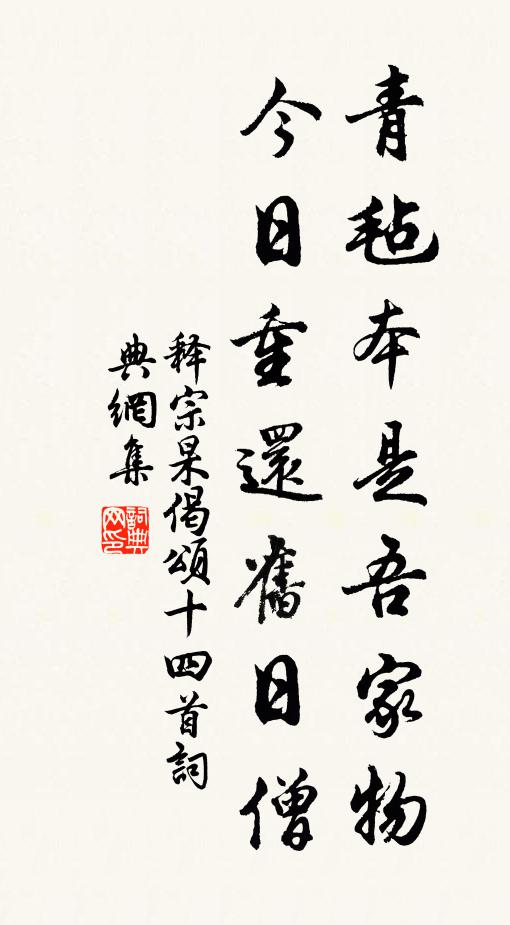 青毡本是吾家物
今日重還舊日僧
释宗杲偈頌十四首詞
典網集
詞典網印